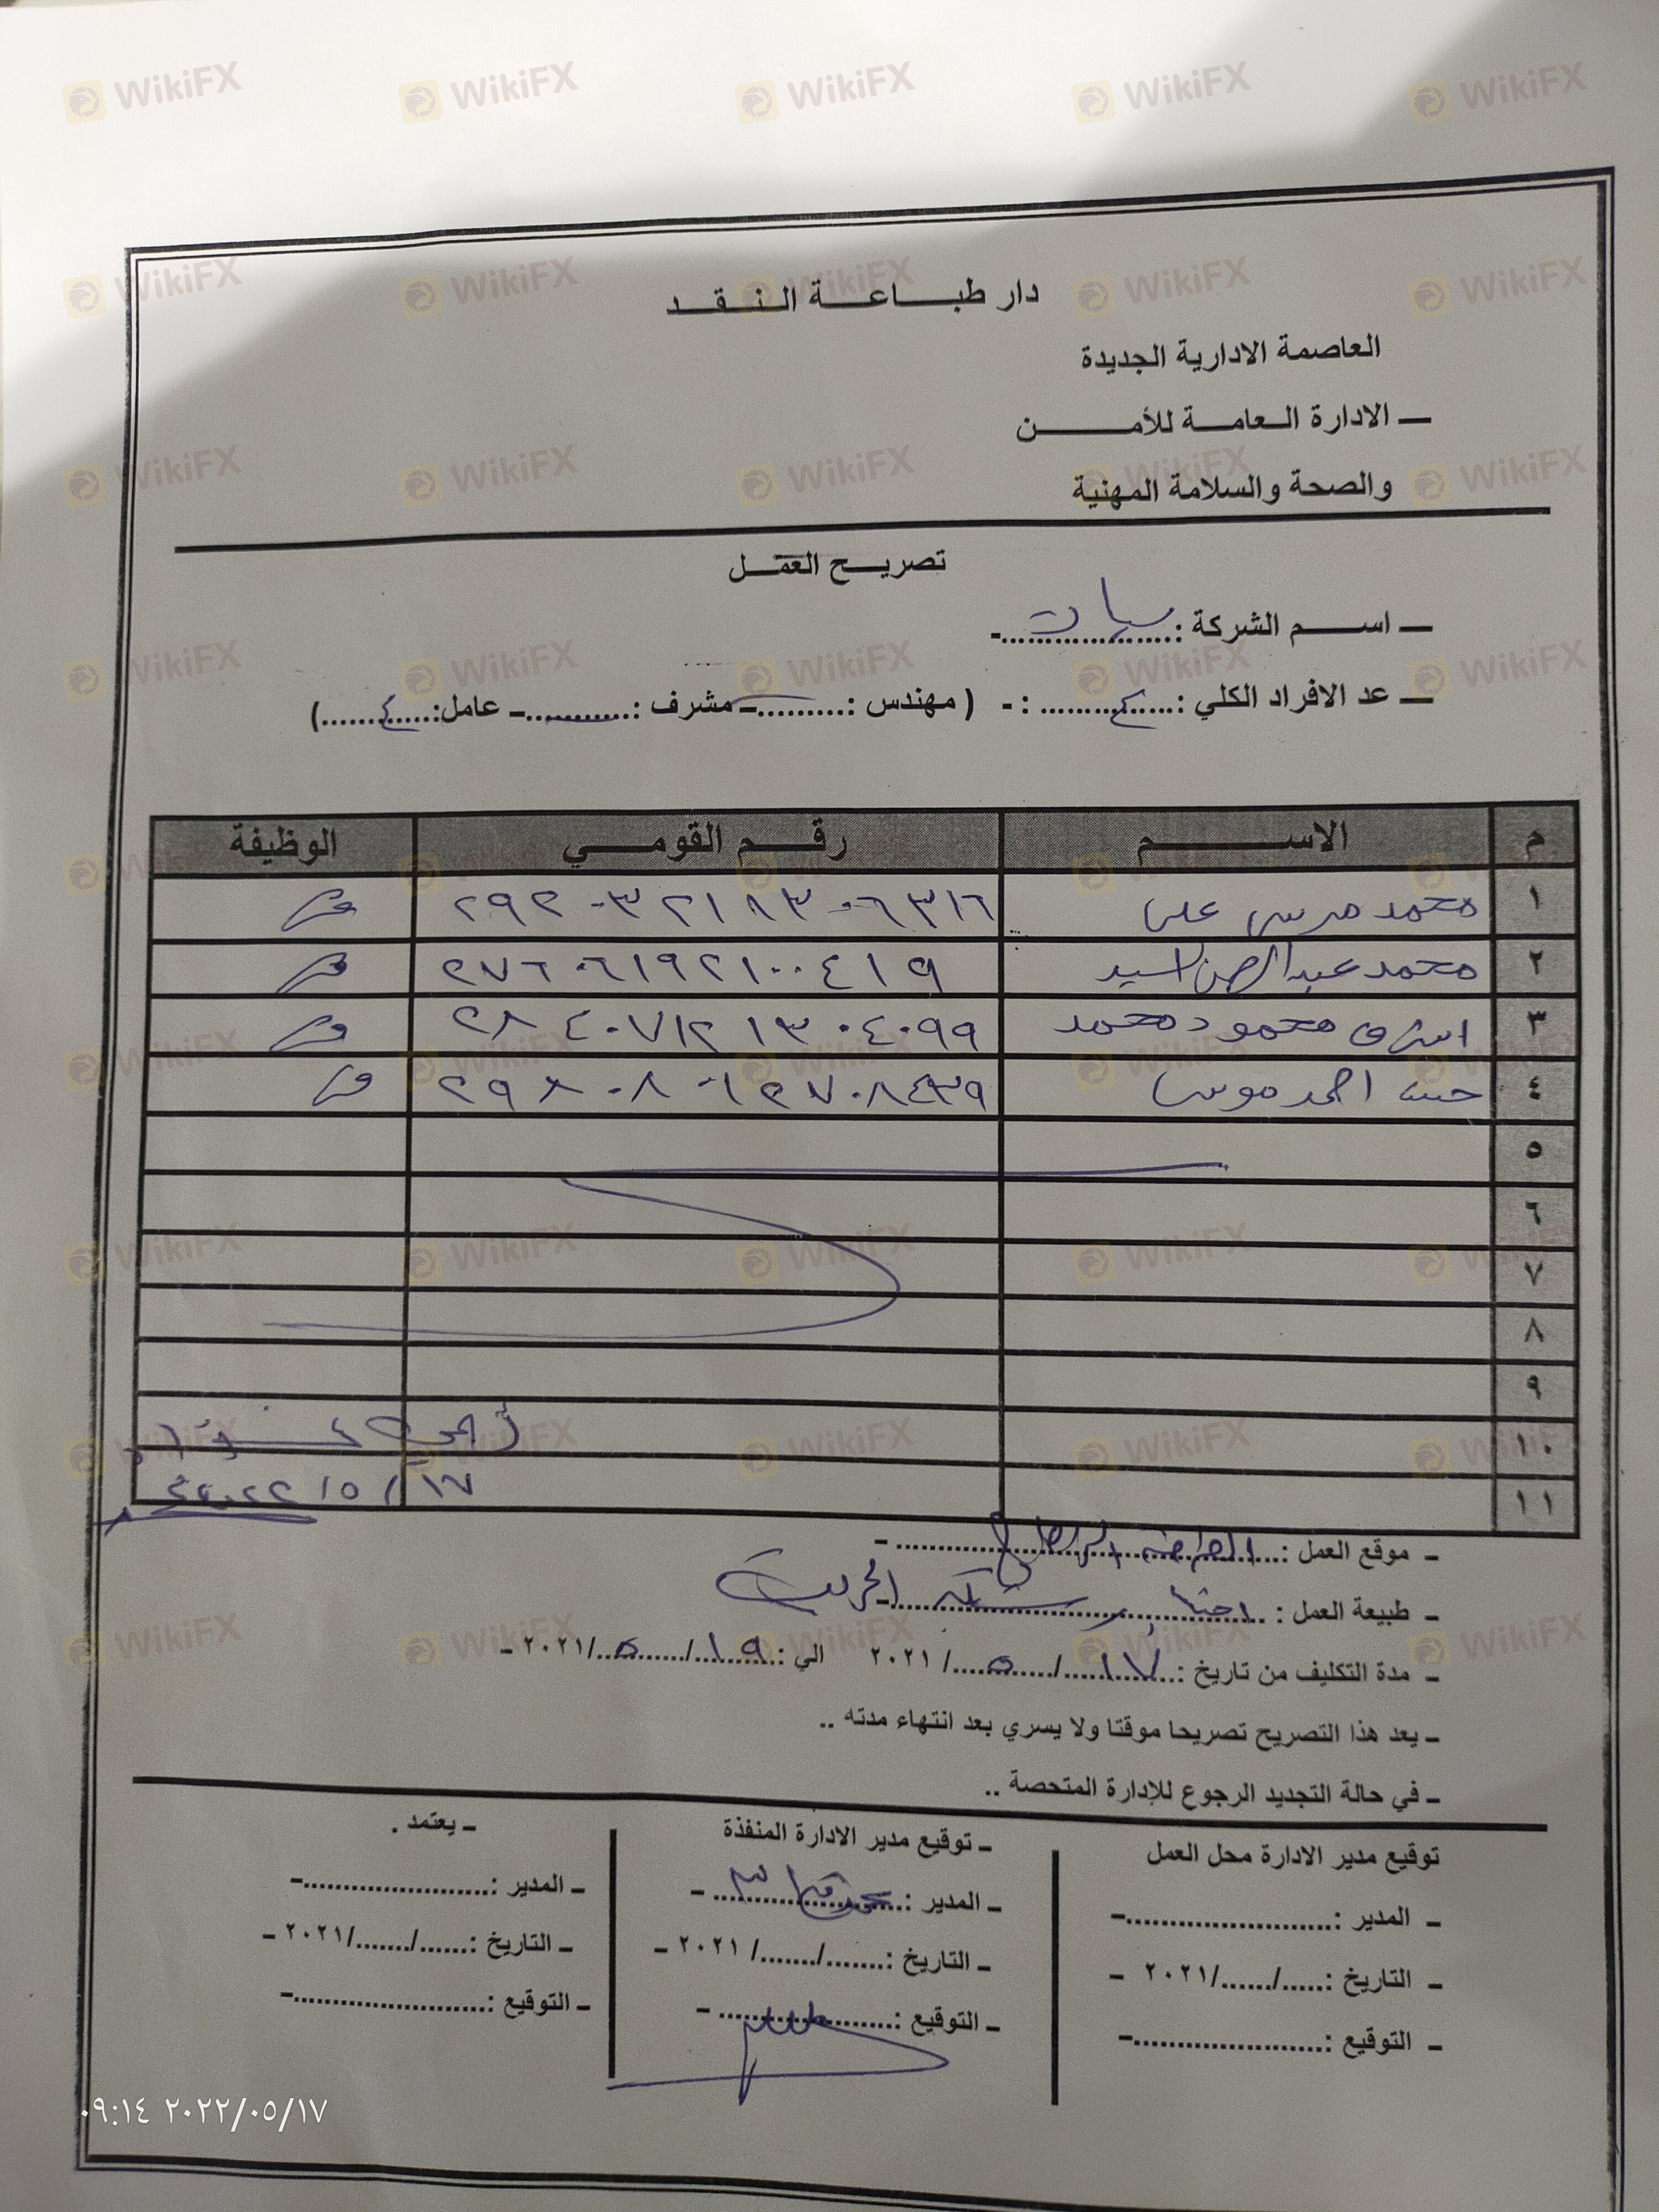 دار طباعة النقد
العاصمة الادارية الجديدة
ـ الادارة العامة للأمن
والصحة والسلامة المهنية
تصريح العمل
ـ اسم الشركة :....................-
ـ عد الافراد الكلي : ٤ : - ( مهندس :.........ـ مشرف :...........ـ عامل: ٤ )
م الاسم رقم القومي الوظيفة
١ محمد مرسى على ٢٩٢٠٣٢١١٣٠٦٣١٦
٢ محمد عبدالرحمن السيد ٢٧٦٠٦١٩٢١٠٠٤١٩
٣ اشرف محمود محمد ٢٨٤٠٧١٢١٣٠٤٠٩٩
٤ احمد موسى
٥
٦
٧
٨
٩
١٠
١١ ١٧/٥/٢٠٢٢
ـ موقع العمل :
ـ طبيعة العمل : شبكة الحريق
ـ مدة التكليف من تاريخ : ١٧/٥/٢٠٢١ الي : ١٩/٥/٢٠٢١ ـ
ـ يعد هذا التصريح تصريحا موقتا ولا يسري بعد انتهاء مدته ..
ـ في حالة التجديد الرجوع للإدارة المتحصة ..
توقيع مدير الادارة محل العمل
ـ المدير :.......................-
ـ التاريخ :...../....../٢٠٢١ ـ
ـ التوقيع :.......................-
ـ توقيع مدير الادارة المنفذة
ـ المدير :....................... -
ـ التاريخ :......./......./ ٢٠٢١ ـ
ـ التوقيع :....................... -
ـ يعتمد .
ـ المدير :.......................-
ـ التاريخ :....../......./٢٠٢١ ـ
ـ التوقيع :.......................-
٠٩:١٤ ٢٠٢٢/٠٥/١٧
WikiFX